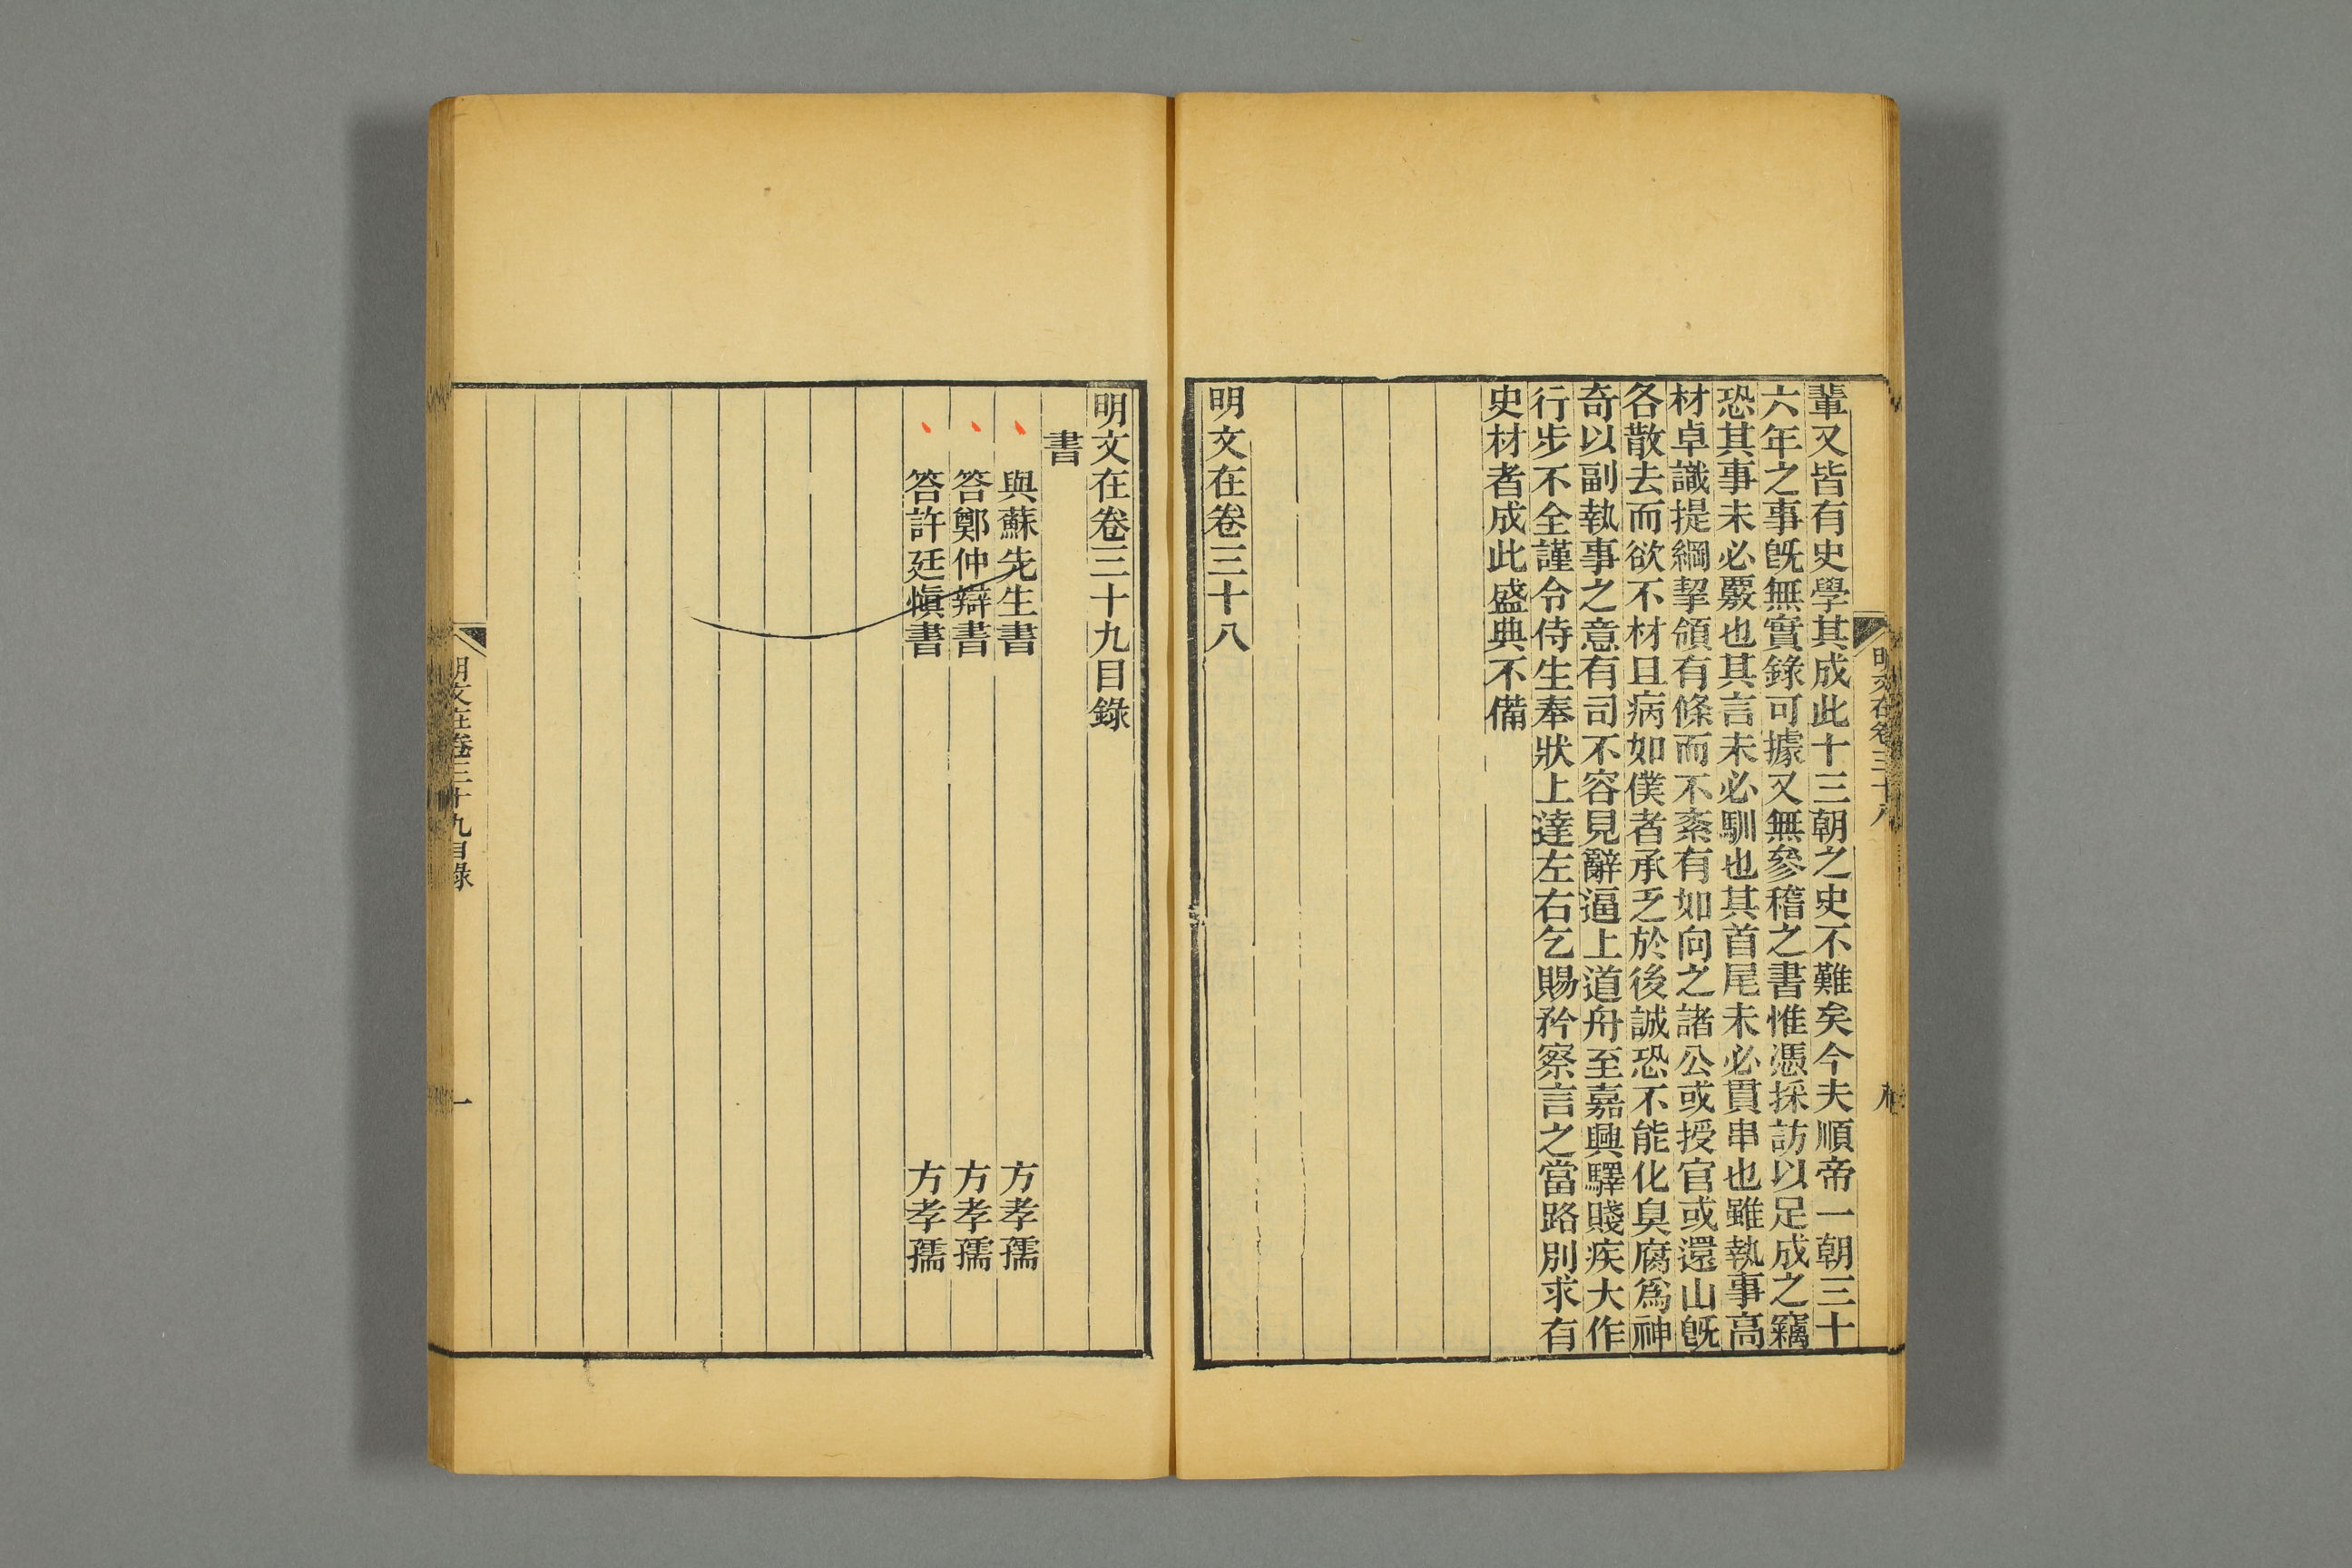 輩又皆有史學其成此十三朝之史不難矣今夫順帝一朝三十
六年之事旣無實錄可據又無參稽之書惟憑採訪以足成之竊
恐其事未必覈也其言未必馴也其首尾未必貫串也雖執事高
材卓識提綱挈領有條而不紊有如向之諸公或授官或還山旣
各散去而欲不材且病如僕者承乏於後誠恐不能化臭腐爲神
奇以副執事之意有司不容見辭逼上道舟至嘉興驛賤疾大作
行步不全謹令侍生奉狀上達左右乞賜矜察言之當路別求有
史材者成此盛典不備
明文在卷三十八
明文在卷三十八
明文在卷三十九目錄
書
與蘇先生書 方孝孺
答鄭仲辯書 方孝孺
答許廷愼書 方孝孺
明文在卷三十九目錄
一